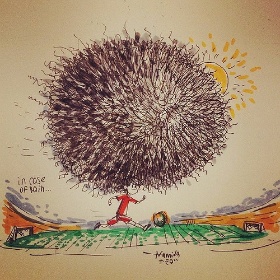 in case
of rain...